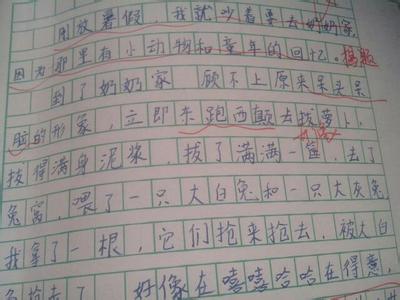 刚放暑假，我就吵着要去奶奶家，
因为那里有小动物和童年的回忆。
到了奶奶家 顾不上原来呆头呆
脑的形象，立即东跑西颠去拔萝卜，
拔得满身泥浆，拔了满满一筐，去了
兔窝，喂了一只大白兔和一只大灰兔
我拿了一根，它们抢来抢去，被大白
兔抢去了 好像在嘻嘻哈哈在得意，